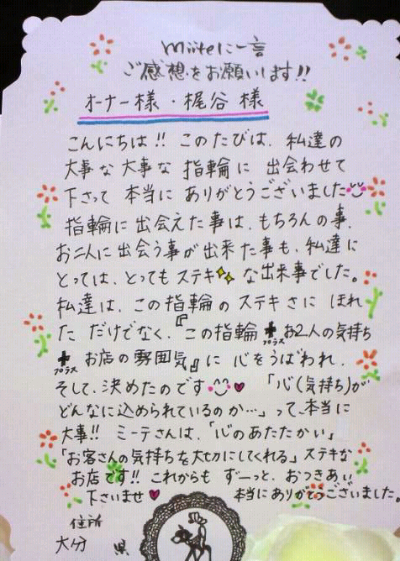 miiteに一言
ご感想をお願いします!!
オーナー様・梶谷様
こんにちは!! このたびは、私達の
大事な大事な指輪に出会わせて
下さって本当にありがとうございました
指輪に出会えた事は、もちろんの事、
お二人に出会う事が出来た事も、私達に
とっては、とってもステキ✨な出来事でした。
私達は、この指輪のステキさにほれ
ただけでなく、『この指輪+プラスお2人の気持ち
+プラスお店の雰囲気』に心をうばわれ、
そして、決めたのです♥ 「心(気持ち)が
どんなに込められているのか…」って、本当に
大事!! ミーテさんは、「心のあたたかい」
「お客さんの気持ちを大切にしてくれる」ステキな
お店です!! これからもずーっと、おつきあい
下さいませ♥ 本当にありがとうございました。
住所
大分 県